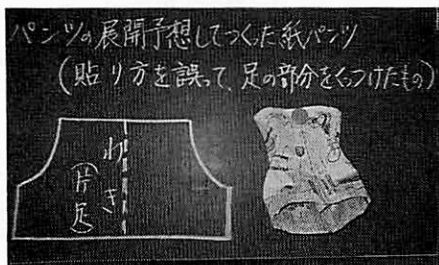 パンツの展開予想してつくった紙パンツ
(貼り方を誤って、足の部分をくっつけたもの)
わき
(片足)